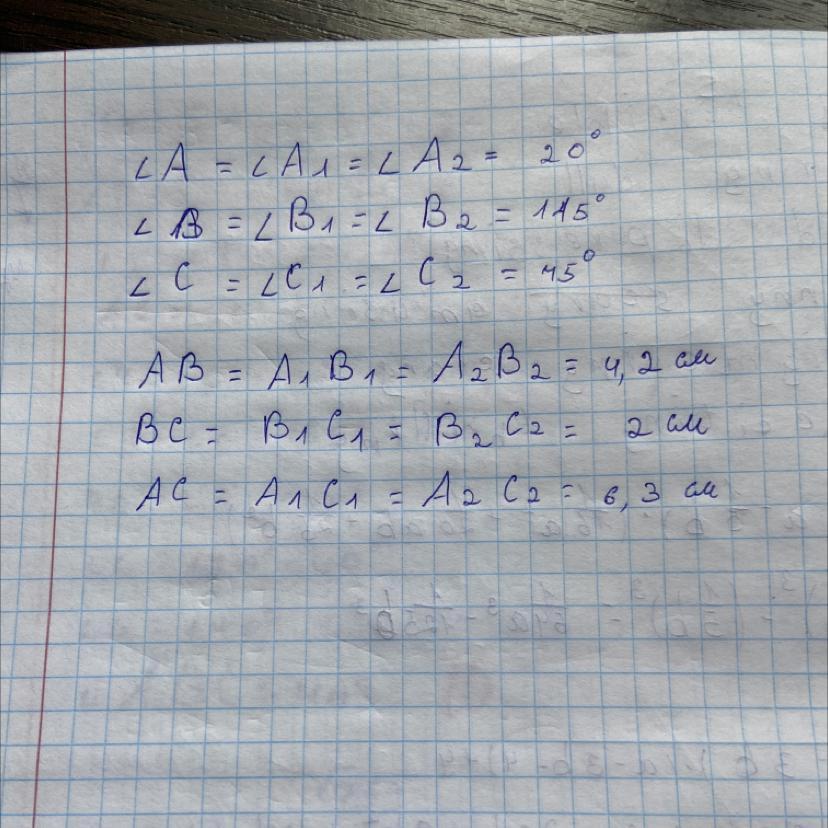 ∠A = ∠A1 = ∠A2 = 20°
∠B = ∠B1 = ∠B2 = 115°
∠C = ∠C1 = ∠C2 = 45°
AB = A1B1 = A2B2 = 4,2 см
BC = B1C1 = B2C2 = 2 см
AC = A1C1 = A2C2 = 6,3 см